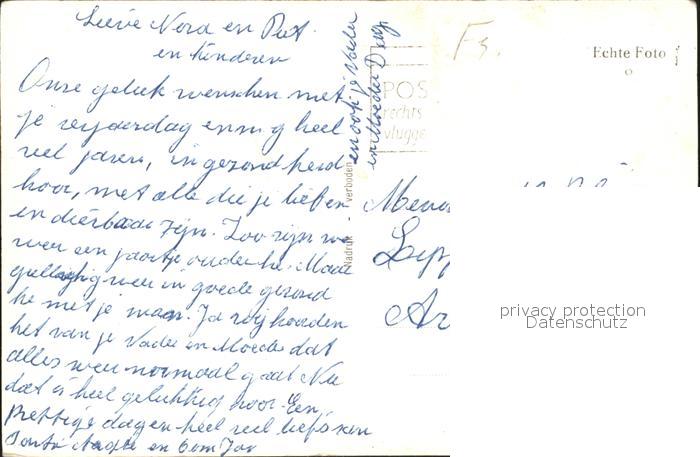 Lieve Nora en Piet
en kinderen
Onze geluk wenschen met
je verjaardag en nog heel
veel jaren, in gezondheid
hoor, met alle die je lief en
en dierbaar zijn. Zoo zijn we
weer een jaartje ouder he. Maar
gelukkig weer in goede gezond
he met je man. Ja wij hoorden
het van je Vader en Moeder dat
alles weer normaal gaat Nu
dat is heel gelukkig hoor. Een
prettige dag en heel veel liefs van
Tante en Oom Jan
en ook je Vader
en Moeder
POS
rechts
vlugge
Nadruk verboden
Fs.
Echte Foto
Mevr
Ar
privacy protection
Datenschutz